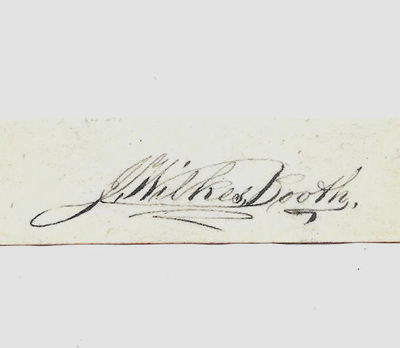 J. Wilkes Booth.